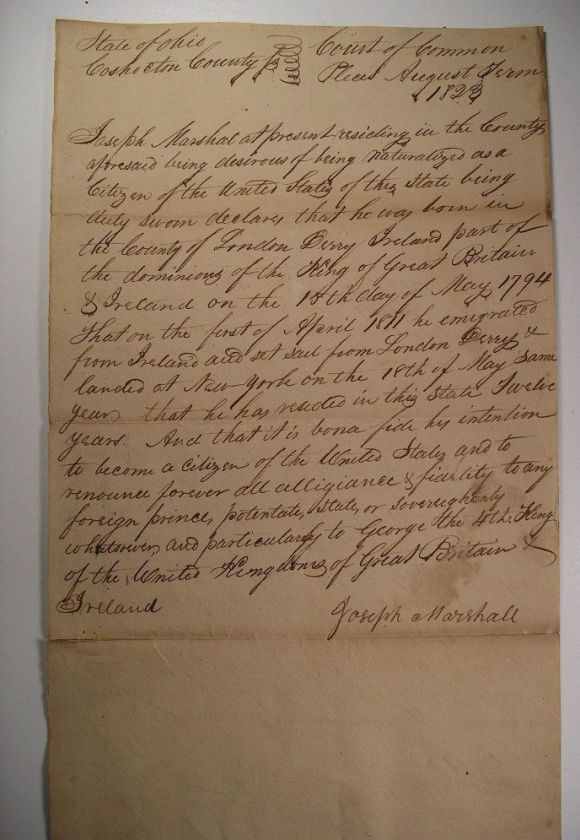 State of Ohio
Coshocton County ss
Court of Common
Pleas August Term
1823
Joseph Marshal at present residing in the County
aforesaid being desirous of being naturalized as a
Citizen of the United States of this State being
duly sworn declares that he was born in
the County of London Derry Ireland part of
the dominions of the King of Great Britain
& Ireland on the 18th day of May 1794
That on the first of April 1811 he emigrated
from Ireland and set sail from London Derry &
landed at New york on the 18th of May same
year that he has resided in this State Twelve
years. And that it is bona fide his intention
to become a citizen of the United States and to
renounce forever all alligiance & fidelity to any
foreign prince, potentate, state, or sovereighnty
whatsoever, and particularly to George the 4th King
of the United Kingdoms of Great Britain &
Ireland
Joseph Marshall